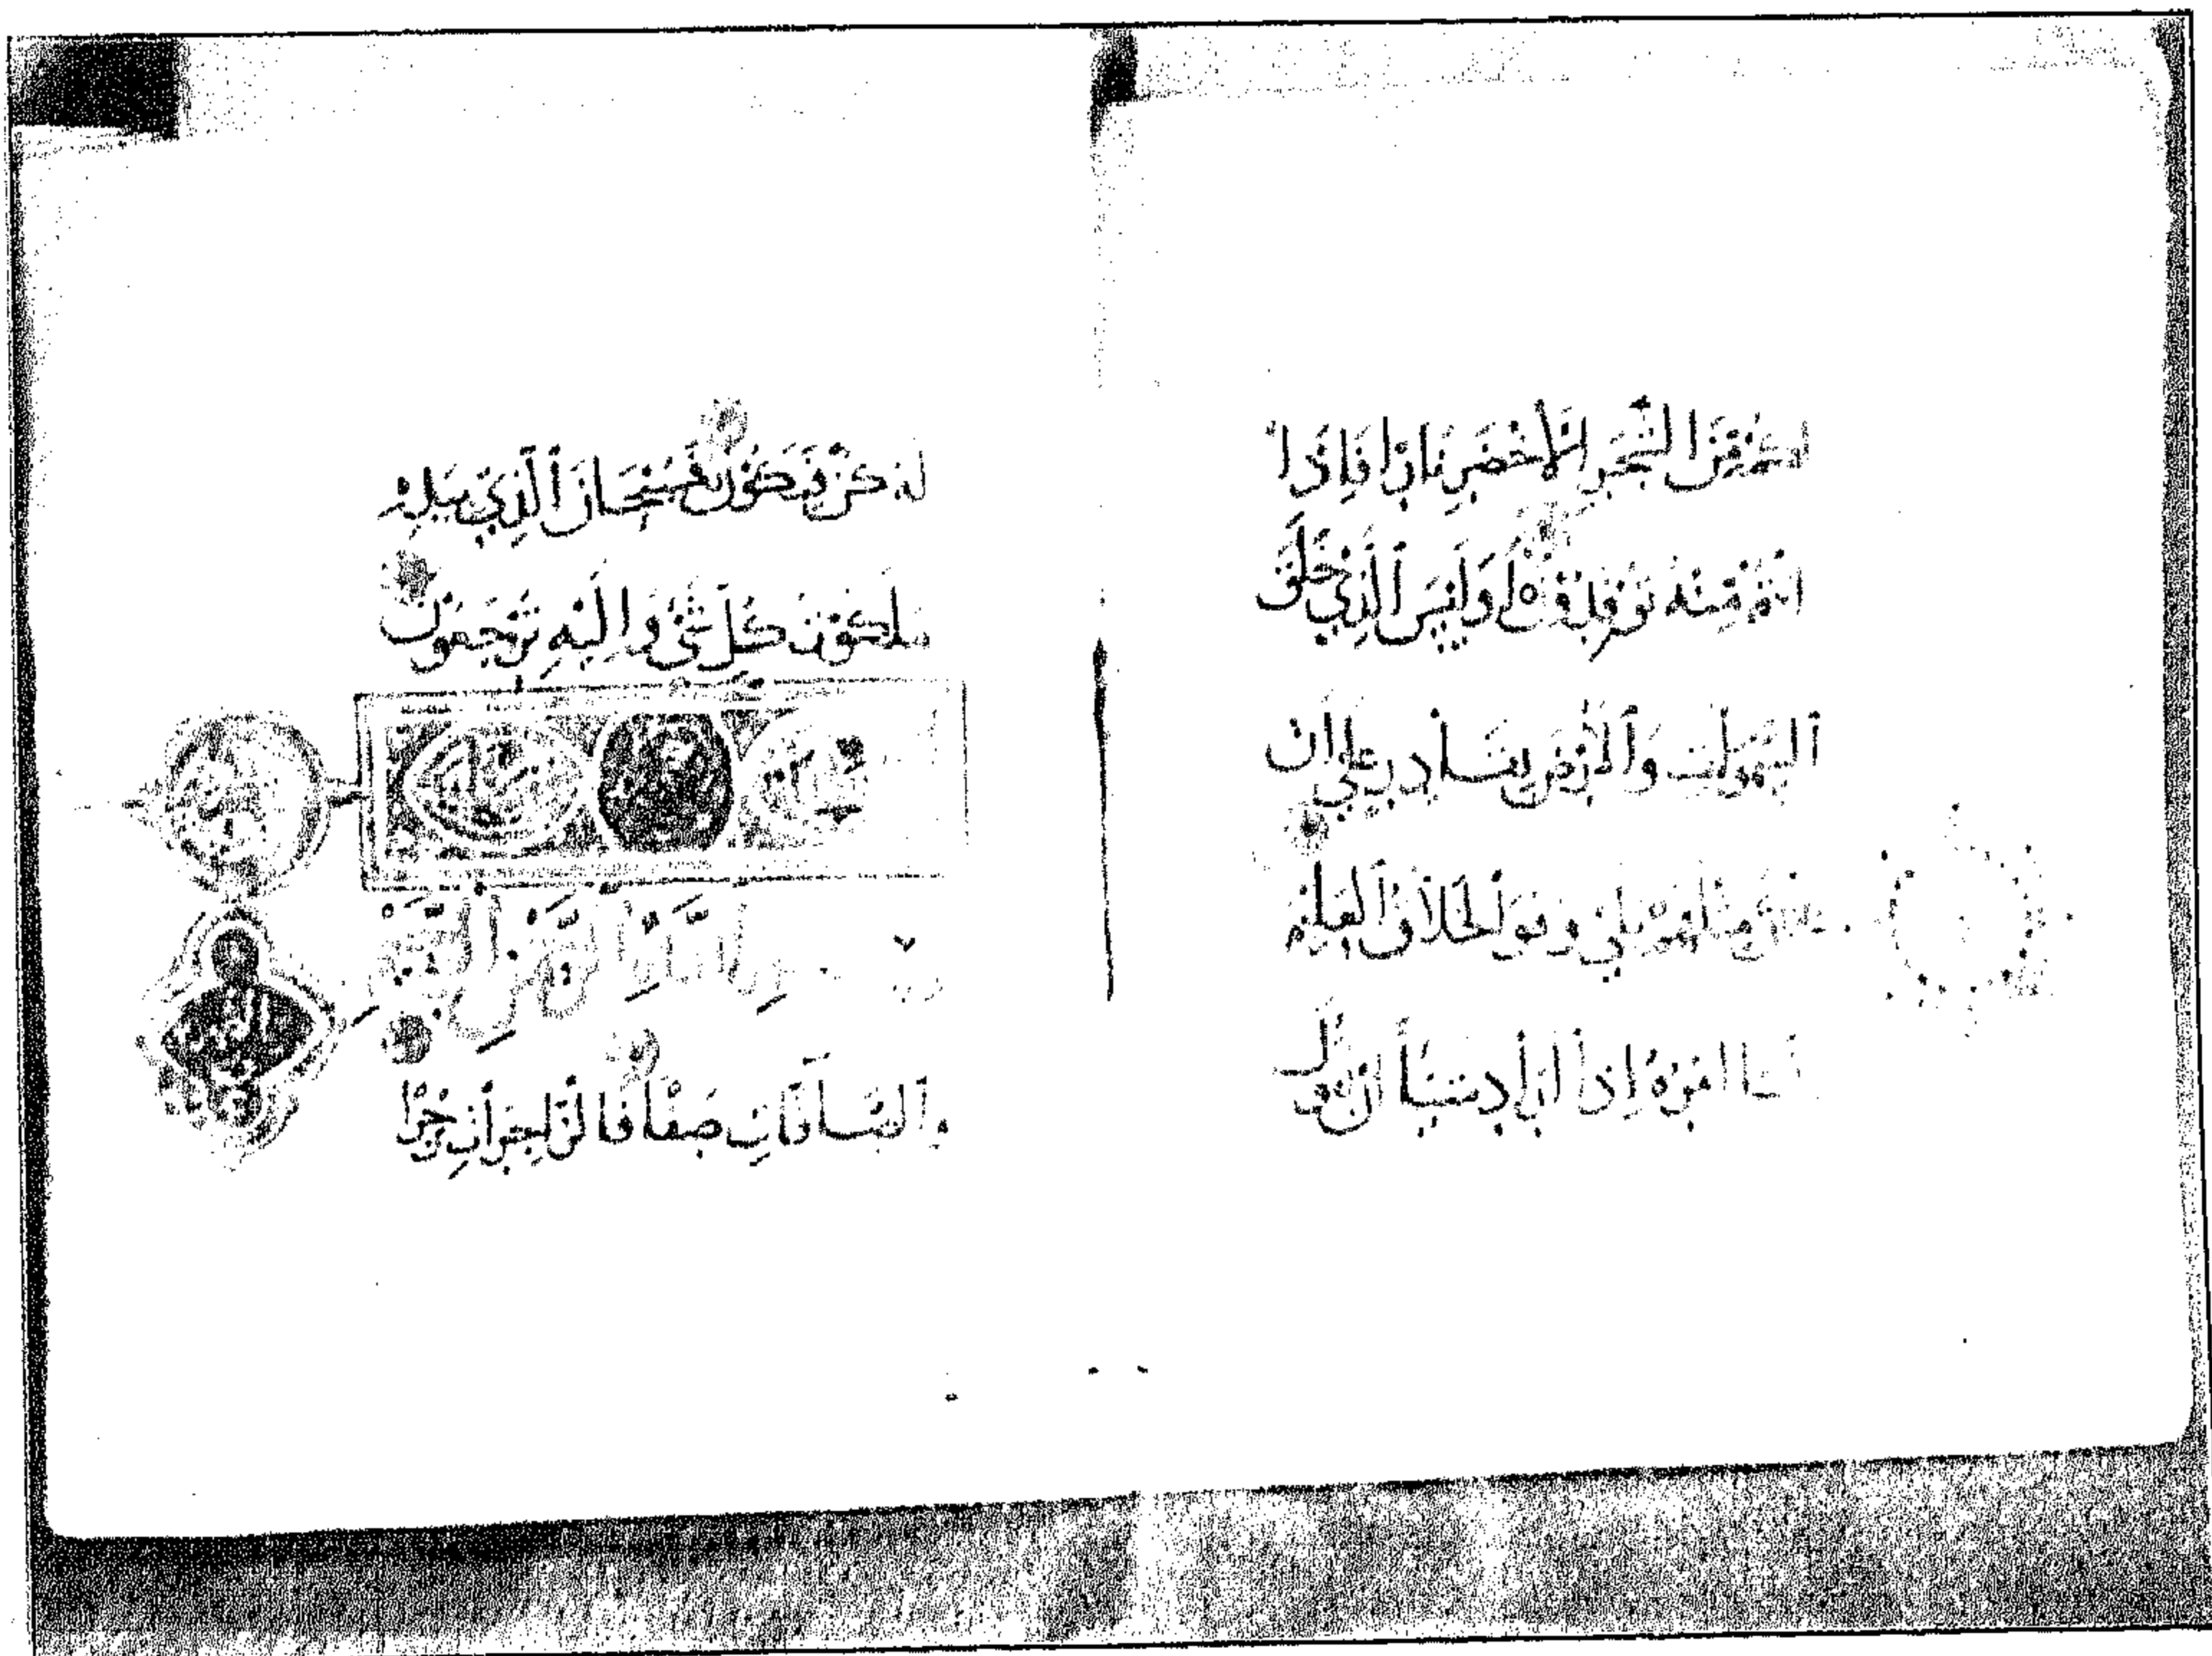 لكم من الشجر الأخضر نارا فإذا
أنتم منه توقدون أوليس الذي خلق
ٱلسموات وٱلأرض بقادر على أن
يخلق مثلهم بلى وهو ٱلخلاق ٱلعليم
إنما امره إذا أراد شيئا أن يقول
له كن فيكون فسبحان ٱلذي بيده
ملكوت كل شيء وإليه ترجعون
بسم الله الرحمن الرحيم
وٱلصافات صفا فالزاجرات زجرا